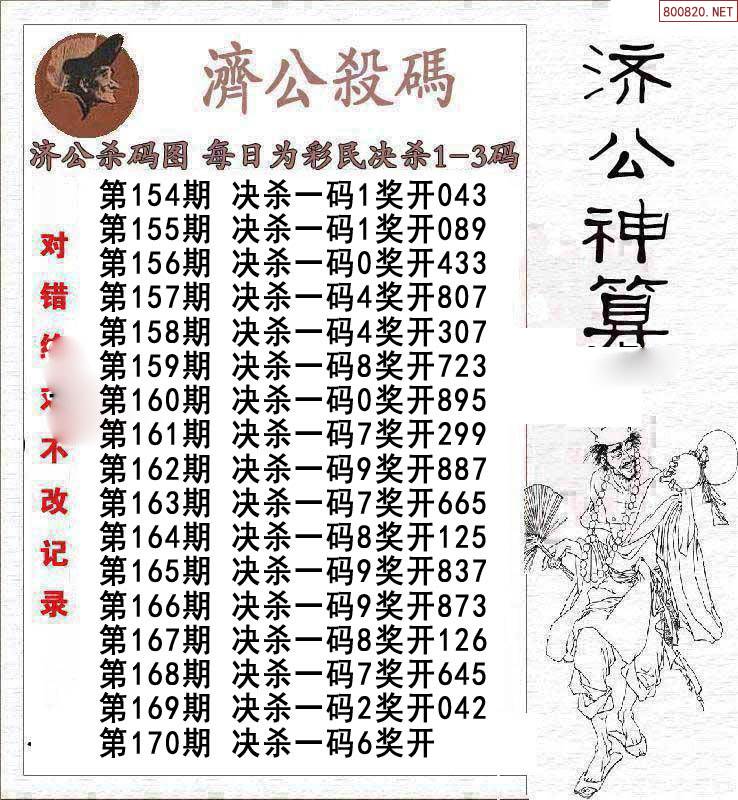 800820.NET
濟公殺碼
济公杀码图 每日为彩民决杀1-3码
第154期 决杀一码1奖开043
第155期 决杀一码1奖开089
第156期 决杀一码0奖开433
第157期 决杀一码4奖开807
第158期 决杀一码4奖开307
第159期 决杀一码8奖开723
第160期 决杀一码0奖开895
第161期 决杀一码7奖开299
第162期 决杀一码9奖开887
第163期 决杀一码7奖开665
第164期 决杀一码8奖开125
第165期 决杀一码9奖开837
第166期 决杀一码9奖开873
第167期 决杀一码8奖开126
第168期 决杀一码7奖开645
第169期 决杀一码2奖开042
第170期 决杀一码6奖开
对错不改记录
济公神算